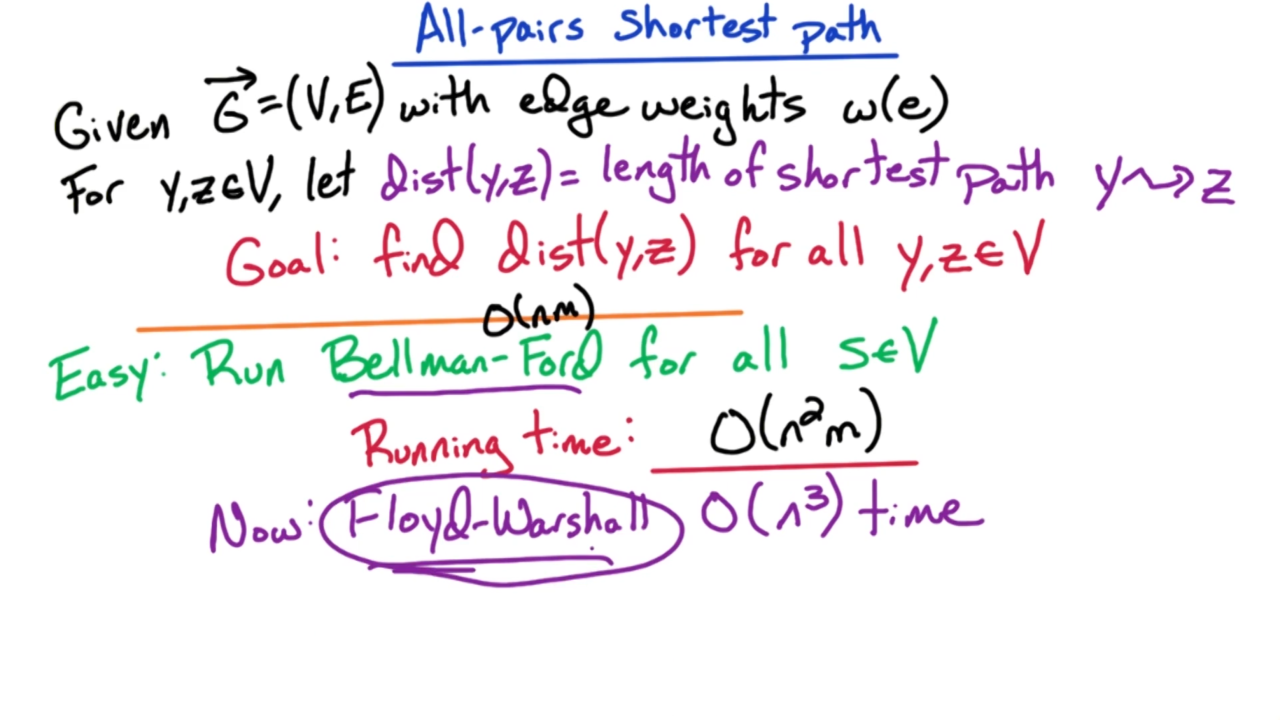 All-pairs Shortest path
Given G⃗=(V,E) with edge weights w(e)
For y,z∈V, let dist(y,z)= length of shortest path y⇝z
Goal: find dist(y,z) for all y,z∈V
O(nm)
Easy: Run Bellman-Ford for all s∈V
Running time: O(n²m)
Now: Floyd-Warshall O(n³) time